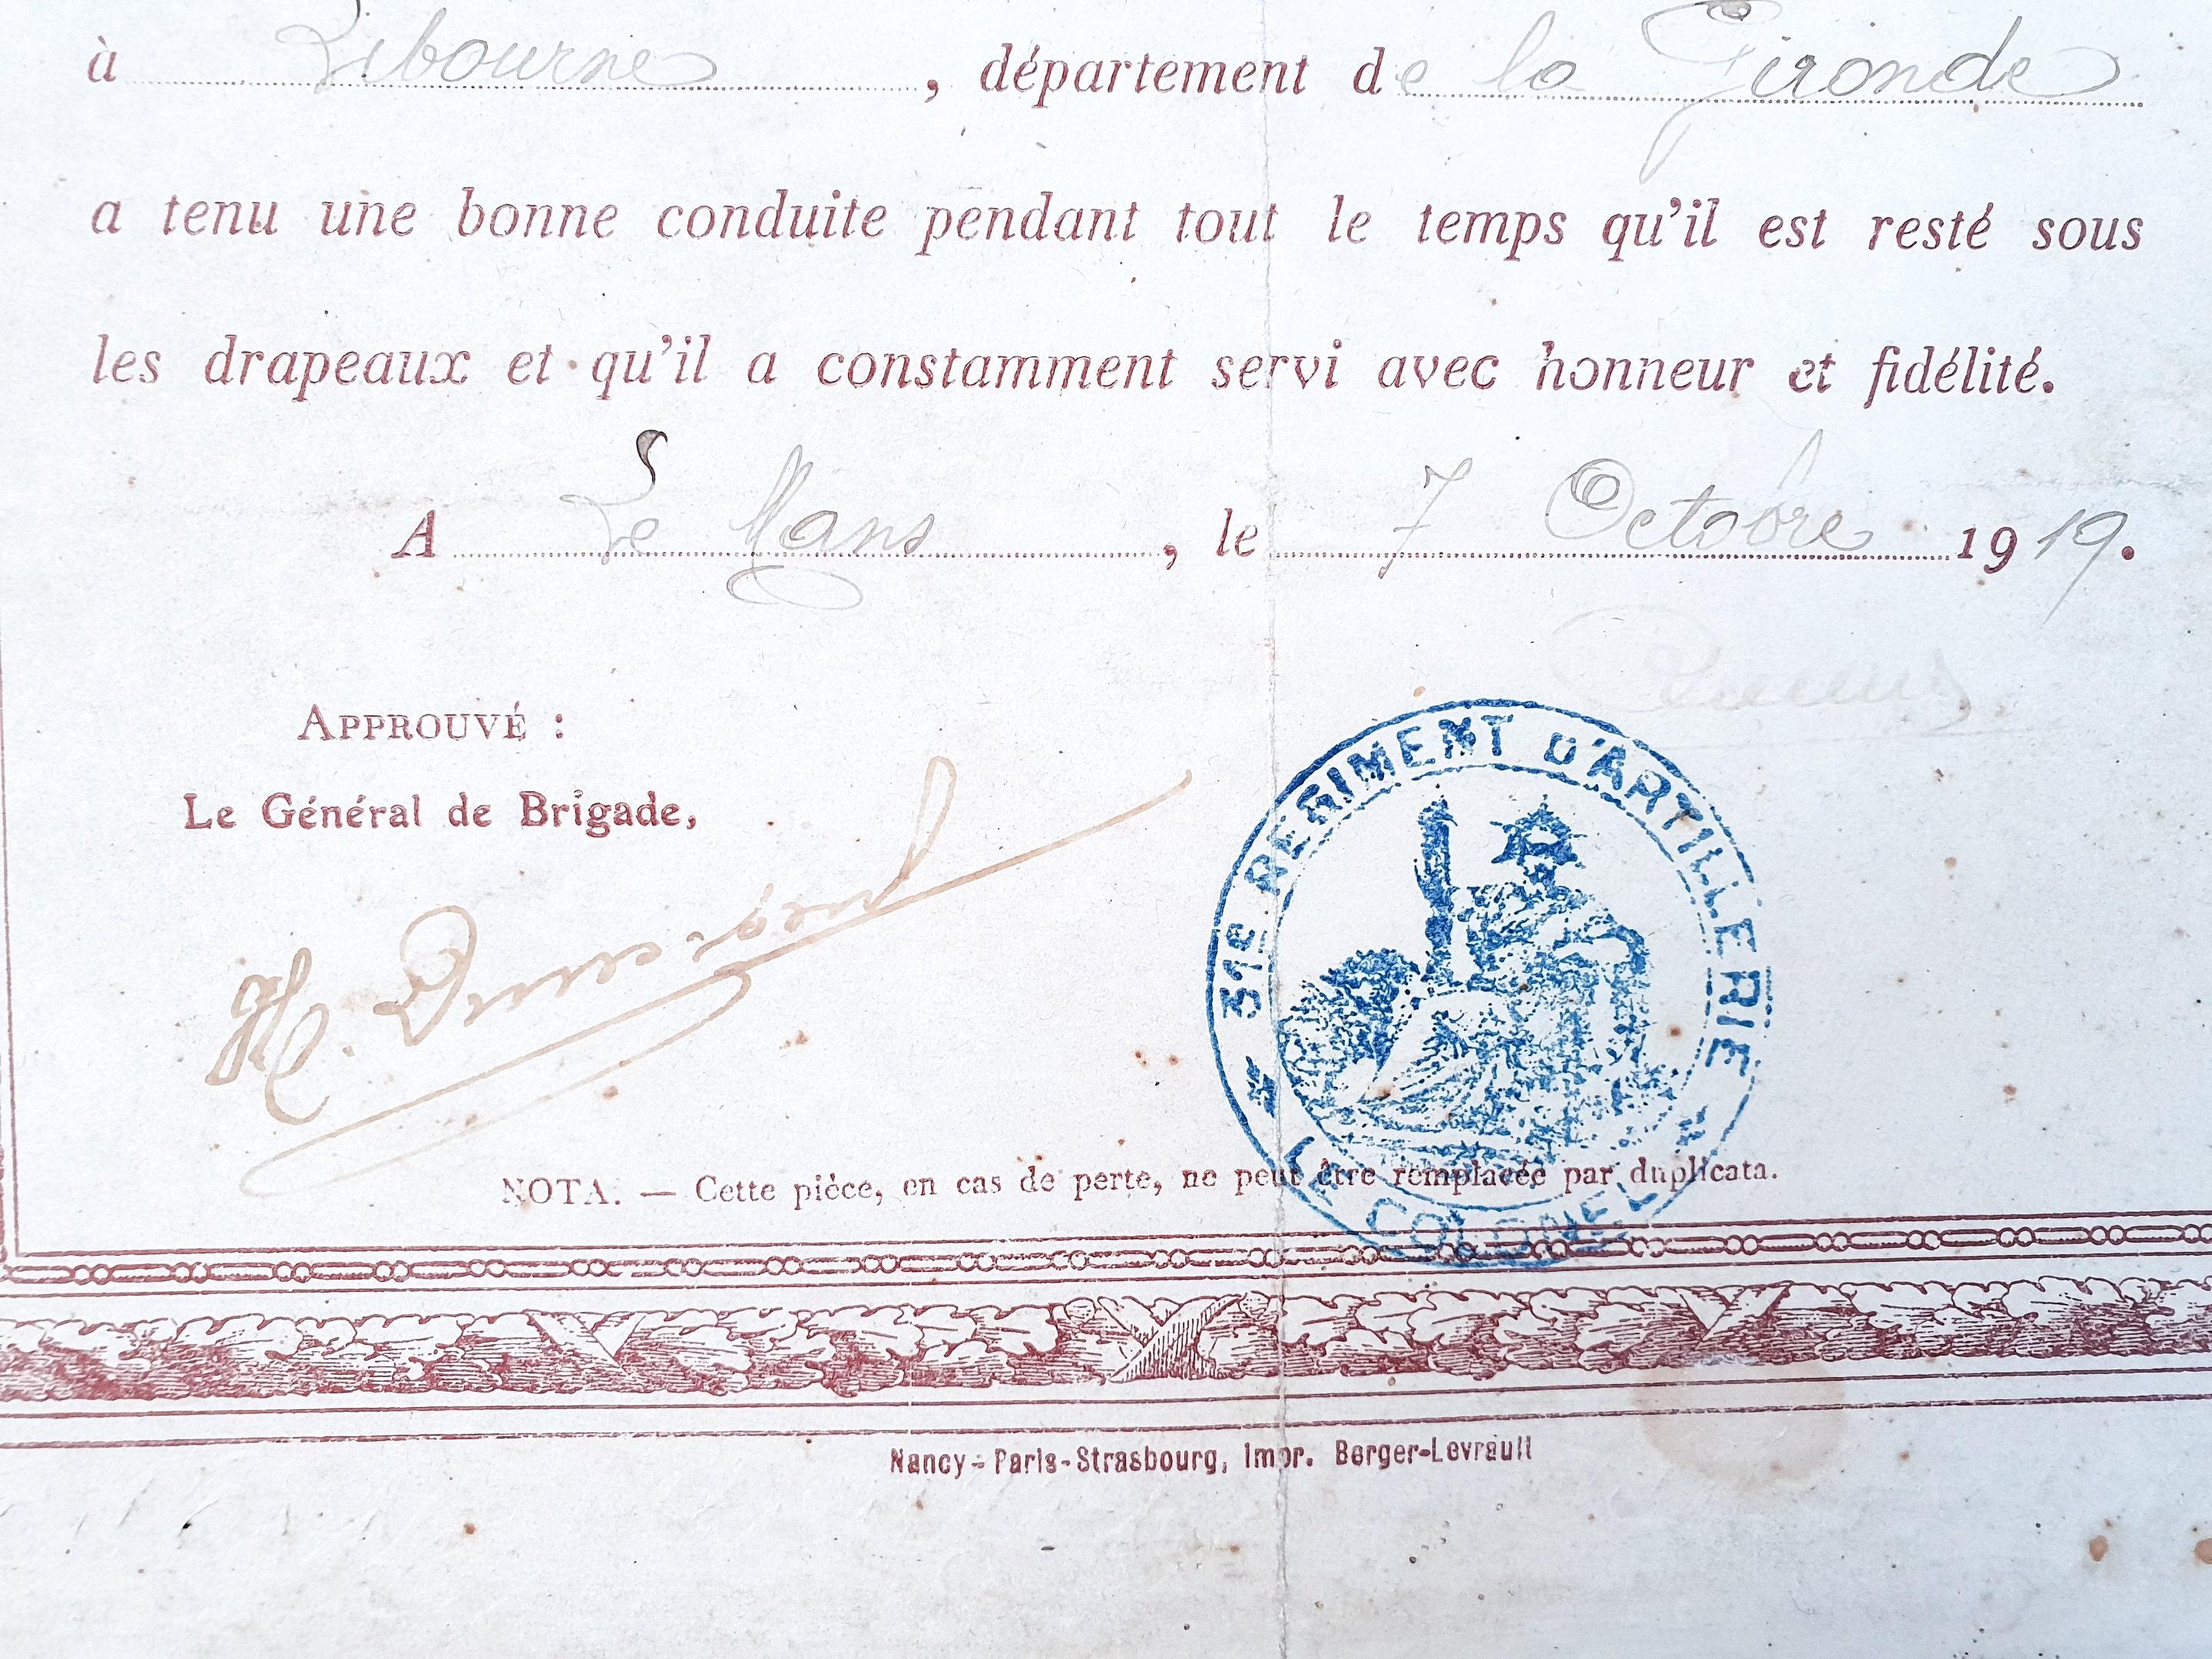 à Libourne, département de la Gironde
a tenu une bonne conduite pendant tout le temps qu'il est resté sous
les drapeaux et qu'il a constamment servi avec honneur et fidélité.
A Le Mans, le 7 Octobre 1919.
APPROUVÉ :
Le Général de Brigade,
31e REGIMENT D'ARTILLERIE
LE COLONEL
NOTA. — Cette pièce, en cas de perte, ne peut être remplacée par duplicata.
Nancy-Paris-Strasbourg, Impr. Berger-Levrault